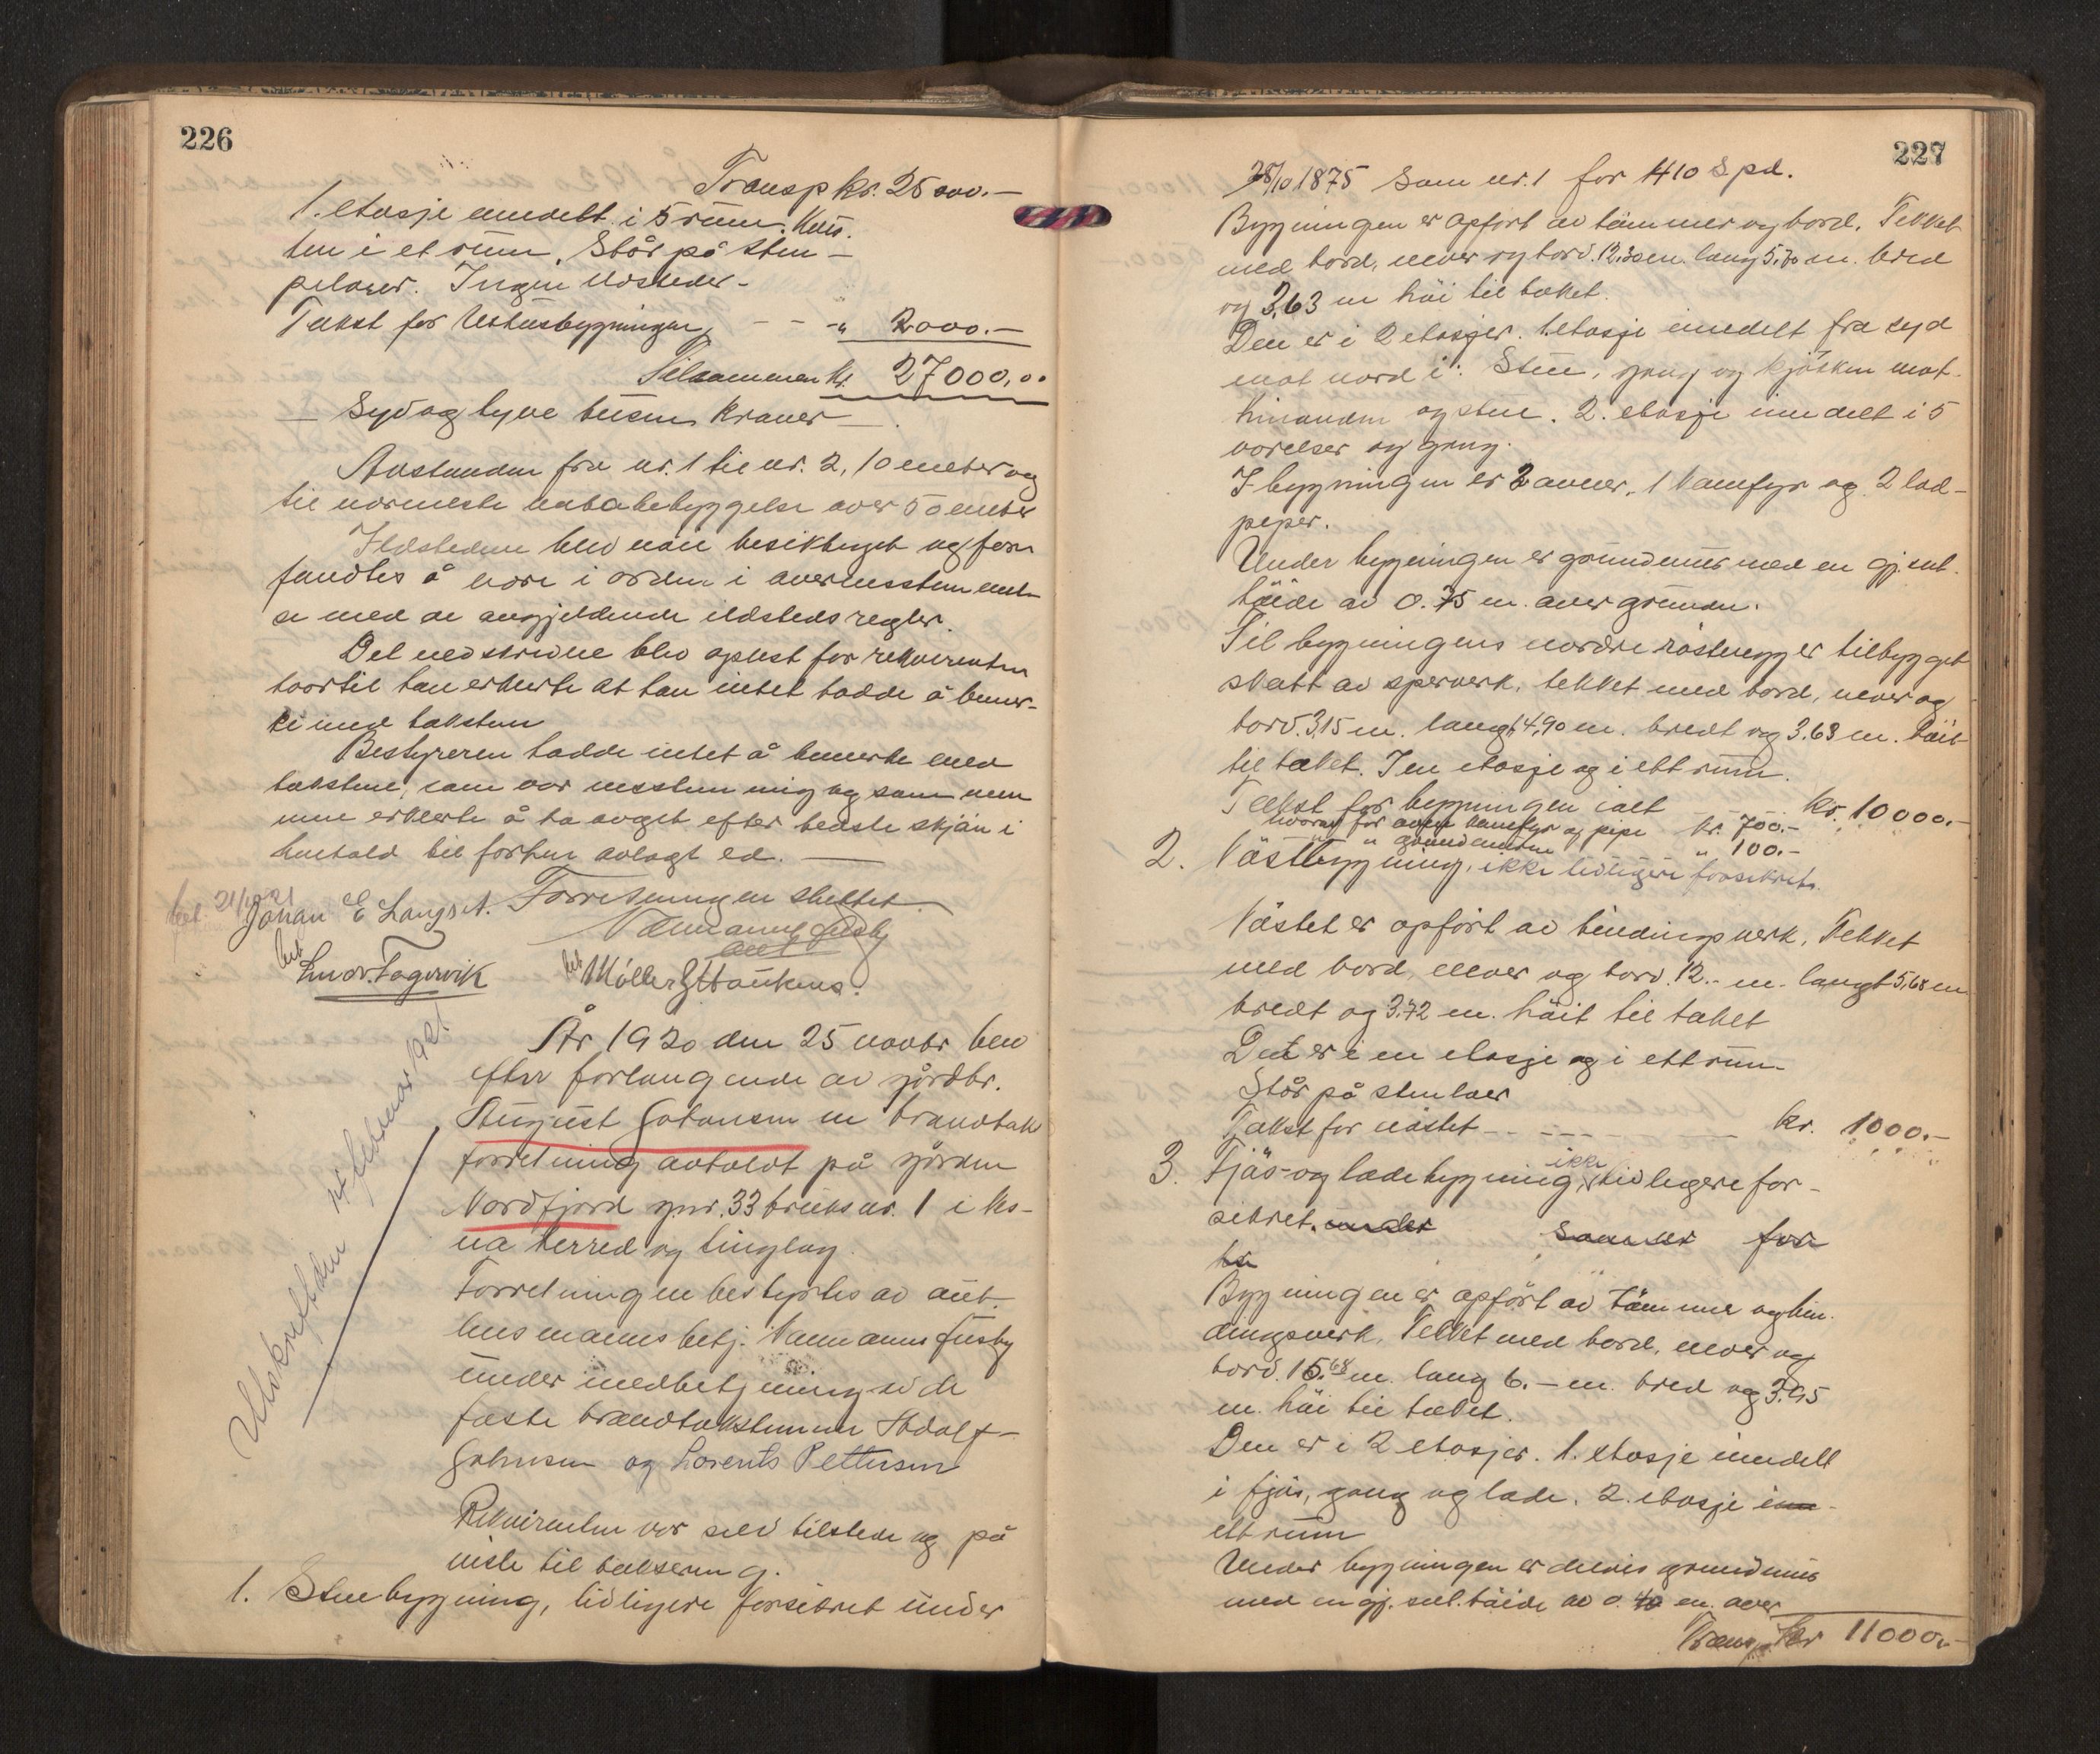 226
Transp kr. 25000.-
1. etasje inndelt i 5 rum. Kvis-
ten i et rum. Står på sten-
pelarer. Ingen ildsteder-
Takst for Uthusbygningen - - -" 2000.-
Tilsammen kr. 27000,00
- Syv og tyve tusen kroner -
Avstanden fra nr. 1 til nr. 2, 10 meter og
til nærmeste nabobebyggelse over 50 meter
Ildstedene blev nøie besiktiget og for-
fandtes å være i orden i overensstemmel-
se med de angjeldende ildstedsregler.
Det nedskrevne blev oplest for rekvirenten
hvortil han erklærte at han intet hadde å bemer-
ke med taksten
Bestyreren hadde intet å bemerke med
takstene, som var enstemmig og som men-
nene erklærte å ha avgit efter bedste skjøn i
henhold til forhen avlagt ed. -
bet. 21/1 1921
Johan E Langset. Forretningen sluttet
Normann Fusby
aut
bet Einar Fagervik bet Møller G Haukenes.
Utskrift den 14 februar 1921
År 1920 den 25 novbr blev
efter forlangende av gårdbr.
August Johansen en brandtakst
forretning avholdt på gården
Nordfjord gnr. 33 bruksnr. 1 i
na herred og tinglag.
Forretningen bestyrtes av aut.
lensmannsbetj. Normann Fusby
under medbetjening av de
faste brandtakstmenn Adolf
Johnsen og Lorents Pettersen
Rekvirenten var selv tilstede og på
viste til taksering.
1. Stuebygning, tidligere forsikret under
227
28/10 1875 som nr. 1 for 410 Spd.
Bygningen er opført av tømmer og bord. Tekket
med bord, never og torv. 12,30 m. lang 5,70 m. bred
og 3,63 m høi til taket.
Den er i 2 etasjer. 1. etasje inndelt fra syd
mot nord i: Stue, gang og kjøkken mot
hinanden og stue. 2. etasje inndelt i 5
værelser og gang.
I bygningen er 2 ovner, 1 komfyr og 2 lod-
peper.
Under bygningen er grundmur med en gj.snt.
høide av 0.75 m. over grunden.
Til bygningens nordre røstvegg er tilbygget
skott av sperverk, tekket med bord, never og
torv. 3,15 m. langt, 4,90 m. bredt og 3.63 m. høit
til taket. I en etasje og i ett rum.
Takst for bygningen ialt - - - kr. 10000.-
hvorav for ovner komfyr og pipe kr. 700.-
" " grundmuren " 100.-
2. Nöstbygning, ikke tidligere forsikret.
Nöstet er opført av bindingsverk. Tekket
med bord, never og torv. 12.- m. langt 5,68 m
bredt og 3.72 m. høit til taket
Det er i en etasje og i ett rum.
Står på sten
Takst for nöstet - - - - kr. 1000.-
3. Fjös- og ladebygning, ikke tidligere for-
sikret. under som nr for
Bygningen er opført av tømmer og bin-
dingsverk. Tekket med bord, never og
torv. 15.68 m. lang 6.- m. bred og 3.95
m. høi til taket.
Den er i 2 etasjer. 1. etasje inndelt
i fjös, gang og lade. 2. etasje inn-
ett rum
Under bygningen er delvis grundmur
med en gj. snl. høide av 0.40 m. over
Transp. kr 11000.-